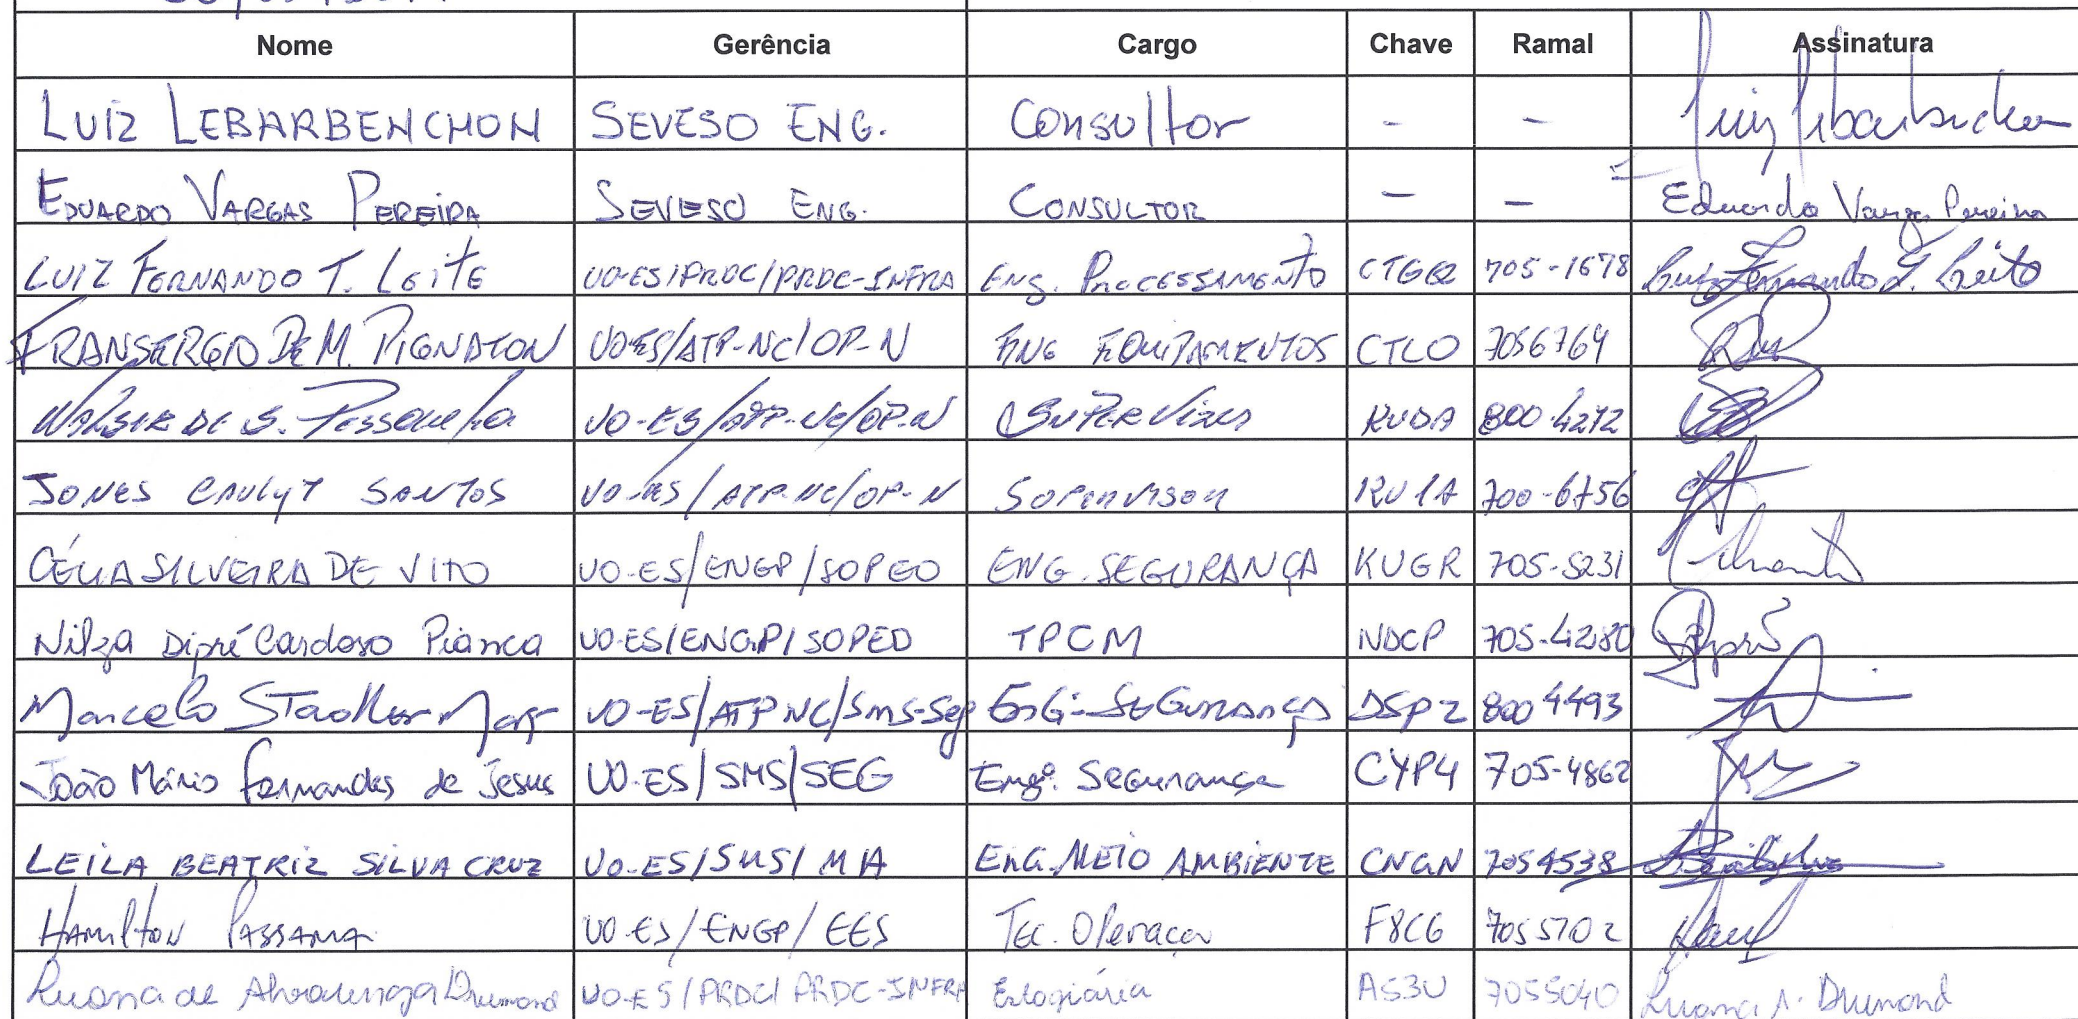 Nome Gerência Cargo Chave Ramal Assinatura
LUIZ LEBARBENCHON SEVESO ENG. Consultor - -
EDUARDO VARGAS PEREIRA SEVESO ENG. CONSULTOR - - Eduardo Vargas Pereira
LUIZ FERNANDO T. LEITE UO-ES/PRDC/PRDC-INFRA ENG. PROCESSAMENTO 705-1678 Luiz Fernando T. Leite
FRANSERGIO DE M. PIGNATON UO-ES/ATP-NC/OP-N ENG EQUIPAMENTOS CTLO 7056764
DE S. UO-ES/ATP-NC/OP-N KUDA 800-4272
JONES SANTOS UO-ES/ATP-NC/OP-N 700-6756
CÉLIA SILVEIRA DE VITO UO-ES/ENGP/SOPEO ENG. SEGURANÇA KUGR 705-5231
Nilza Dipré Cardoso Pianca UO-ES/ENGP/SOPED TPCM NDCP 705-4280
Marcelo UO-ES/ATP-NC/SMS-Seg Engº Segurança DSPZ 800 4493
João Mário Fernandes de Jesus UO-ES/SMS/SEG Engº. Segurança CYP4 705-4862
LEILA BEATRIZ SILVA CRUZ UO-ES/SMS/MA ENG. MEIO AMBIENTE CNGN 7054538
HAMILTON PASSAMA UO-ES/ENGP/EES TEC. Operação F8CG 7055702
Luana de Alvarenga Drumond UO-ES/PRDC/PRDC-INFRA Estagiária AS3U 7055040 Luana A. Drumond